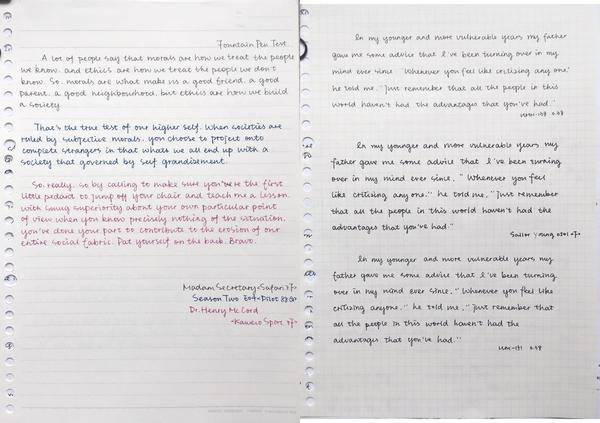 Fountain Pen Test
A lot of people say that morals are how we treat the people
we know. and ethics are how we treat the people we don't
know. So. morals are what make us a good friend. a good
parent. a good neighbourhood. but ethics are how we build
a society.
That's the true test of our higher self. When societies are
ruled by subjective morals. you choose to project onto
complete strangers in that whats we all end up with a
society that governed by self grandisement.
So. really. so by calling to make sure you're the first
little pedant to jump off your chair and teach me a lesson.
with smug superiority about your own particular point
of view when you know precisely nothing of the situation.
you've done your part to contribute to the erosion of our
entire social fabric. Pat yourself on the back. Bravo.
Madam Secretary <Safari
Season Two <Pilot
Dr. Henry McCord
<Kaweco Sport
In my younger and more vulnerable years my father
gave me some advice that I've been turning over in my
mind ever since. "Whenever you feel like critising any one."
he told me. "Just remember that all the people in this
world haven't had the advantages that you've had."
0.38
In my younger and more vulnerable years. my
father gave me some advice that I've been turning
over in my mind ever since. "Whenever you feel
like critising any one." he told me. "Just remember
that all the people in this world haven't had the
advantages that you've had."
Sailor Young
In my younger and more vulnerable years my
father gave me some advice that I've been turning.
over in my mind ever since. "Whenever you feel like
critizing anyone." he told me. "Just remember that
all the people in this world haven't had the
advantages that you've had."
0.38